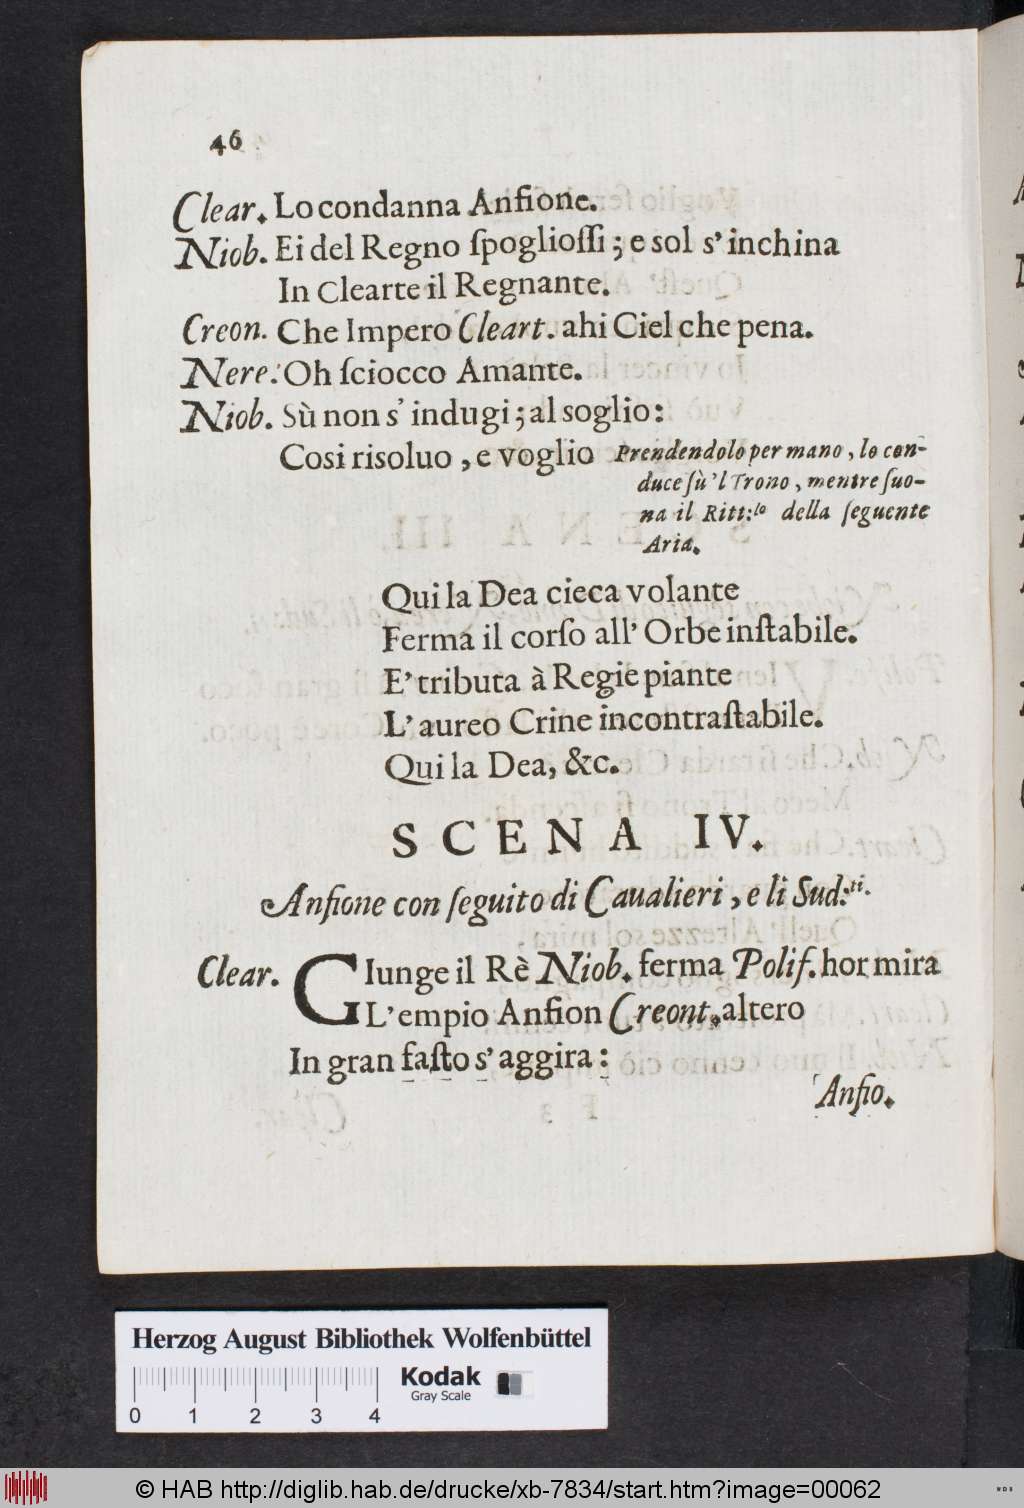 46
Clear. Lo condanna Anfione.
Niob. Ei del Regno ſpoglioſſi; e sol s' inchina
In Clearte il Regnante.
Creon. Che Impero Cleart. ahi Ciel che pena.
Nere: Oh ſciocco Amante.
Niob. Sù non s' indugi; al soglio:
Cosi risoluo, e voglio Prendendolo per mano, lo con-
duce ſù'l Trono, mentre ſuo-
na il Ritt:lo della ſeguente
Aria.
Qui la Dea cieca volante
Ferma il corſo all' Orbe inſtabile.
E' tributa à Regie piante
L' aureo Crine incontraſtabile.
Qui la Dea, &c.
SCENA IV.
Anfione con ſeguito di Caualieri, e li Sud:ti.
Clear. GIunge il Rè Niob. ferma Polif. hor mira
L' empio Anfion Creont. altero
In gran faſto s' aggira:
Anfio.
Herzog August Bibliothek Wolfenbüttel
Kodak
Gray Scale
0 1 2 3 4
© HAB http://diglib.hab.de/drucke/xb-7834/start.htm?image=00062